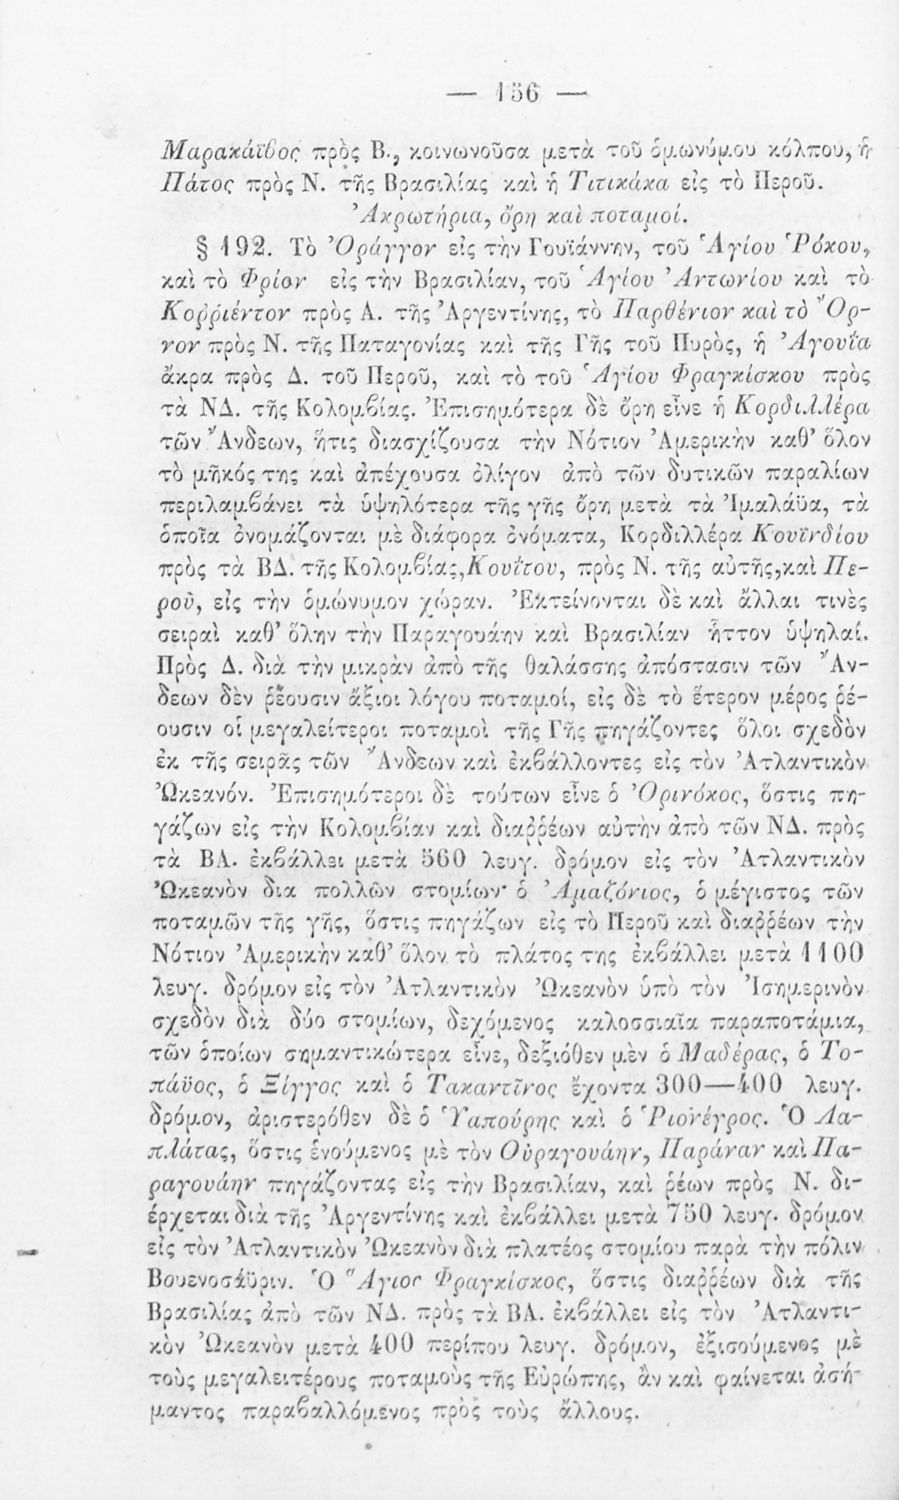 — 156 —
Μαρακάϊβος πρὸς Β., κοινωνοῦσα μετὰ τοῦ ὁμωνύμου κόλπου, ἡ
Πάτος πρὸς Ν. τῆς Βρασιλίας καὶ ἡ Τιτικάκα εἰς τὸ Περοῦ.
Ἀκρωτήρια, ὄρη καὶ ποταμοί.
§ 192. Τὸ Ὀράγγον εἰς τὴν Γουϊάννην, τοῦ Ἁγίου Ῥόκου,
καὶ τὸ Φρίον εἰς τὴν Βρασιλίαν, τοῦ Ἁγίου Ἀντωνίου καὶ τὸ
Κοῤῥιέντον πρὸς Α. τῆς Ἀργεντίνης, τὸ Παρθένιον καὶ τὸ Ὄρ-
νον πρὸς Ν. τῆς Παταγονίας καὶ τῆς Γῆς τοῦ Πυρὸς, ἡ Ἀγουΐα
ἄκρα πρὸς Δ. τοῦ Περοῦ, καὶ τὸ τοῦ Ἁγίου Φραγκίσκου πρὸς
τὰ ΝΔ. τῆς Κολομβίας. Ἐπισημότερα δὲ ὄρη εἶνε ἡ Κορδιλλέρα
τῶν Ἄνδεων, ἥτις διασχίζουσα τὴν Νότιον Ἀμερικὴν καθ’ ὅλον
τὸ μῆκός της καὶ ἀπέχουσα ὀλίγον ἀπὸ τῶν δυτικῶν παραλίων
περιλαμβάνει τὰ ὑψηλότερα τῆς γῆς ὄρη μετὰ τὰ Ἰμαλάϋα, τὰ
ὁποῖα ὀνομάζονται μὲ διάφορα ὀνόματα, Κορδιλλέρα Κουϊνδίου
πρὸς τὰ ΒΔ. τῆς Κολομβίας, Κουΐτου, πρὸς Ν. τῆς αὐτῆς, καὶ Πε-
ροῦ, εἰς τὴν ὁμώνυμον χώραν. Ἐκτείνονται δὲ καὶ ἄλλαι τινὲς
σειραὶ καθ’ ὅλην τὴν Παραγουάην καὶ Βρασιλίαν ἧττον ὑψηλαί.
Πρὸς Δ. διὰ τὴν μικρὰν ἀπὸ τῆς θαλάσσης ἀπόστασιν τῶν Ἄν-
δεων δὲν ῥέουσιν ἄξιοι λόγου ποταμοί, εἰς δὲ τὸ ἕτερον μέρος ῥέ-
ουσιν οἱ μεγαλείτεροι ποταμοὶ τῆς Γῆς πηγάζοντες ὅλοι σχεδὸν
ἐκ τῆς σειρᾶς τῶν Ἄνδεων καὶ ἐκβάλλοντες εἰς τὸν Ἀτλαντικὸν
Ὠκεανόν. Ἐπισημότεροι δὲ τούτων εἶνε ὁ Ὀρινόκος, ὅστις πη-
γάζων εἰς τὴν Κολομβίαν καὶ διαῤῥέων αὐτὴν ἀπὸ τῶν ΝΔ. πρὸς
τὰ ΒΑ. ἐκβάλλει μετὰ 560 λευγ. δρόμον εἰς τὸν Ἀτλαντικὸν
Ὠκεανὸν δια πολλῶν στομίων· ὁ Ἀμαζόνιος, ὁ μέγιστος τῶν
ποταμῶν τῆς γῆς, ὅστις πηγάζων εἰς τὸ Περοῦ καὶ διαῤῥέων τὴν
Νότιον Ἀμερικὴν καθ’ ὅλον τὸ πλάτος της ἐκβάλλει μετὰ 1100
λευγ. δρόμον εἰς τὸν Ἀτλαντικὸν Ὠκεανὸν ὑπὸ τὸν Ἰσημερινὸν
σχεδὸν διὰ δύο στομίων, δεχόμενος καλοσσιαῖα παραποτάμια,
τῶν ὁποίων σημαντικώτερα εἶνε, δεξιόθεν μὲν ὁ Μαδέρας, ὁ Το-
πάϋος, ὁ Ξίγγος καὶ ὁ Τακαντῖνος ἔχοντα 300—400 λευγ.
δρόμον, ἀριστερόθεν δὲ ὁ Ὑαπούρης καὶ ὁ Ῥιονέγρος. Ὁ Λα-
πλάτας, ὅστις ἑνούμενος μὲ τὸν Οὐραγουάην, Παράναν καὶ Πα-
ραγουάην πηγάζοντας εἰς τὴν Βρασιλίαν, καὶ ῥέων πρὸς Ν. δι-
έρχεται διὰ τῆς Ἀργεντίνης καὶ ἐκβάλλει μετὰ 750 λευγ. δρόμον
εἰς τὸν Ἀτλαντικὸν Ὠκεανὸν διὰ πλατέος στομίου παρὰ τὴν πόλιν
Βουενοσάϋριν. Ὁ Ἅγιος Φραγκίσκος, ὅστις διαῤῥέων διὰ τῆς
Βρασιλίας ἀπὸ τῶν ΝΔ. πρὸς τὰ ΒΑ. ἐκβάλλει εἰς τὸν Ἀτλαντι-
κὸν Ὠκεανὸν μετὰ 400 περίπου λευγ. δρόμον, ἐξισούμενος μὲ
τοὺς μεγαλειτέρους ποταμοὺς τῆς Εὐρώπης, ἂν καὶ φαίνεται ἀσή-
μαντος παραβαλλόμενος πρὸς τοὺς ἄλλους.